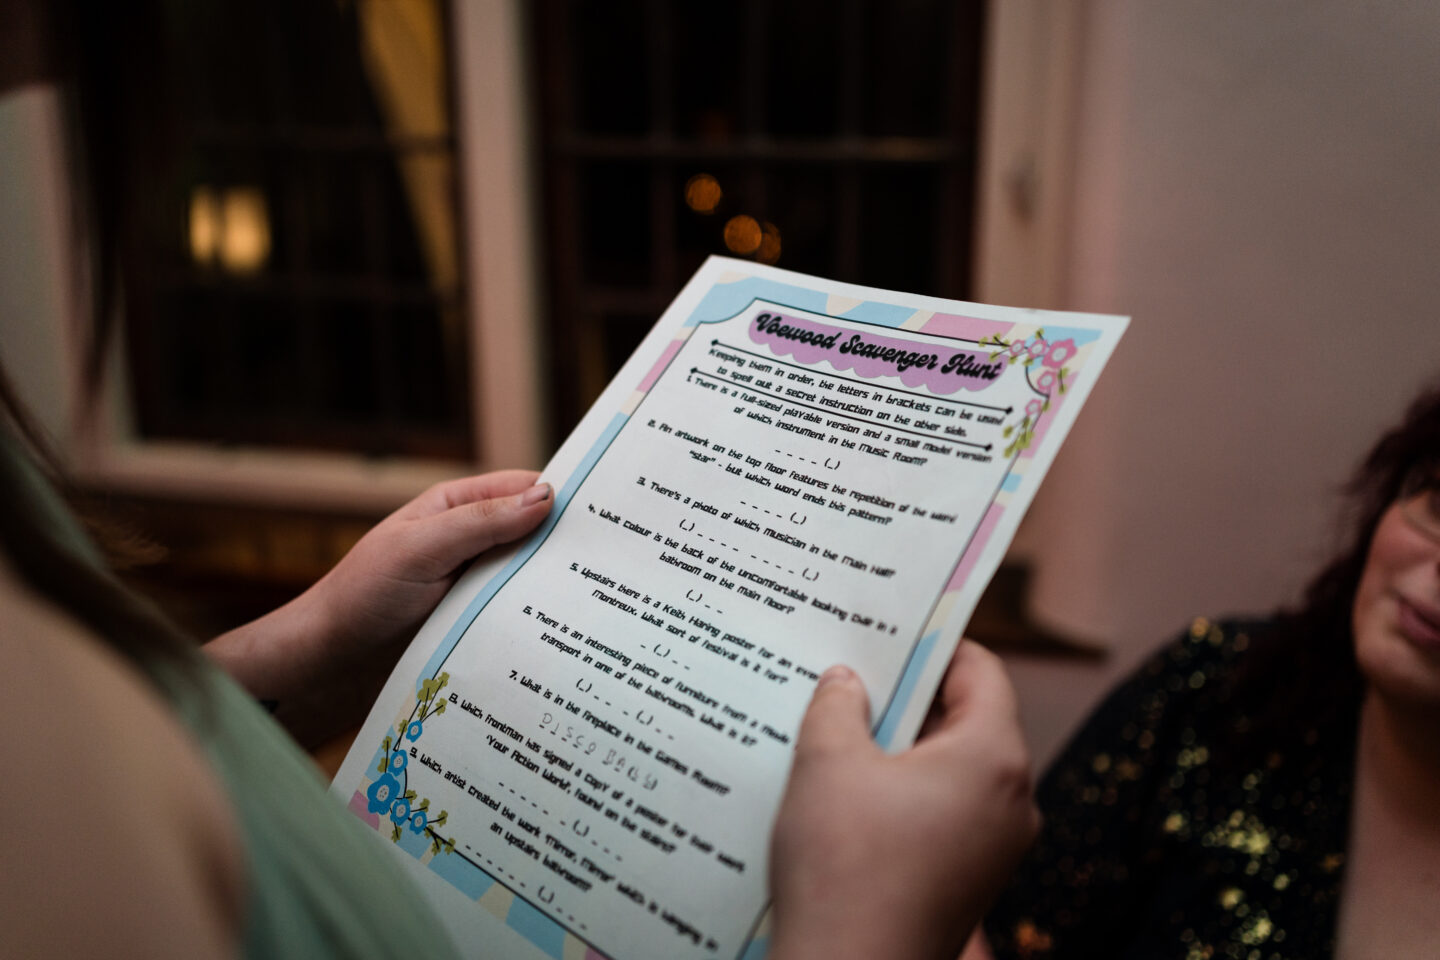 Voewood Scavenger Hunt
Keeping them in order, the letters in brackets can be used
to spell out a secret instruction on the other side.
1. There is a full-sized playable version and a small model version
of which instrument in the Music Room?
_ _ _ _ (_)
2. An artwork on the top floor features the repetition of the word
"star" - but which word ends this pattern?
_ _ _ _ (_)
3. There's a photo of which musician in the Main Hall?
(_) _ _ _ _ _ _ _ _ (_)
4. What colour is the back of the uncomfortable looking chair in a
bathroom on the main floor?
(_) _ _
5. Upstairs there is a Keith Haring poster for an event
Montreux. What sort of festival is it for?
_ (_) _ _
6. There is an interesting piece of furniture from a mode
transport in one of the bathrooms. What is it?
(_) _ _ _ (_) _ _
7. What is in the fireplace in the Games Room?
DISCO BALL
8. Which frontman has signed a copy of a poster for their work
'Your Action World', found on the stairs?
_ _ _ _ _ (_) _ _ _
9. Which artist created the work 'Mirror, Mirror' which is hanging in
an upstairs bathroom?
_ _ _ _ _ (_) _ _ _